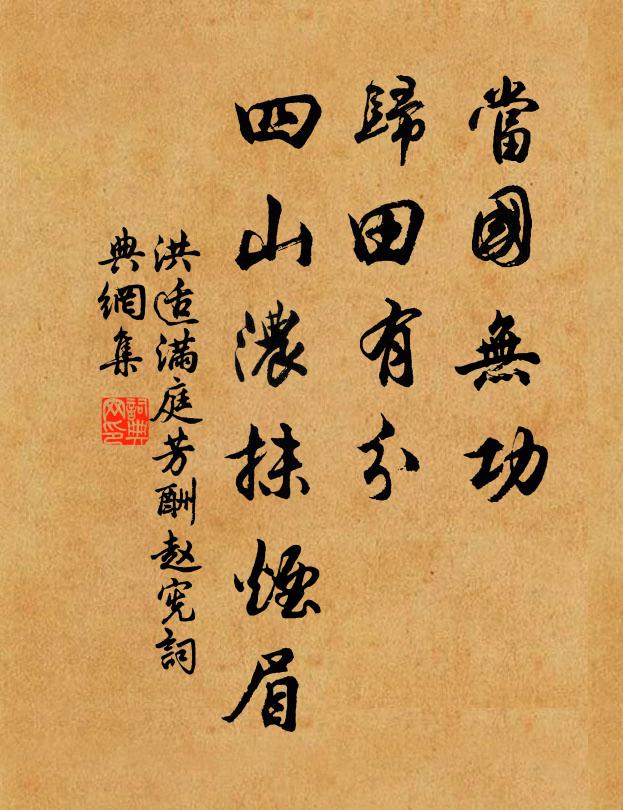 當國無功
歸田有分
四山濃抹煙眉
洪适滿庭芳酬趙宪詞
典網集
詞典網印